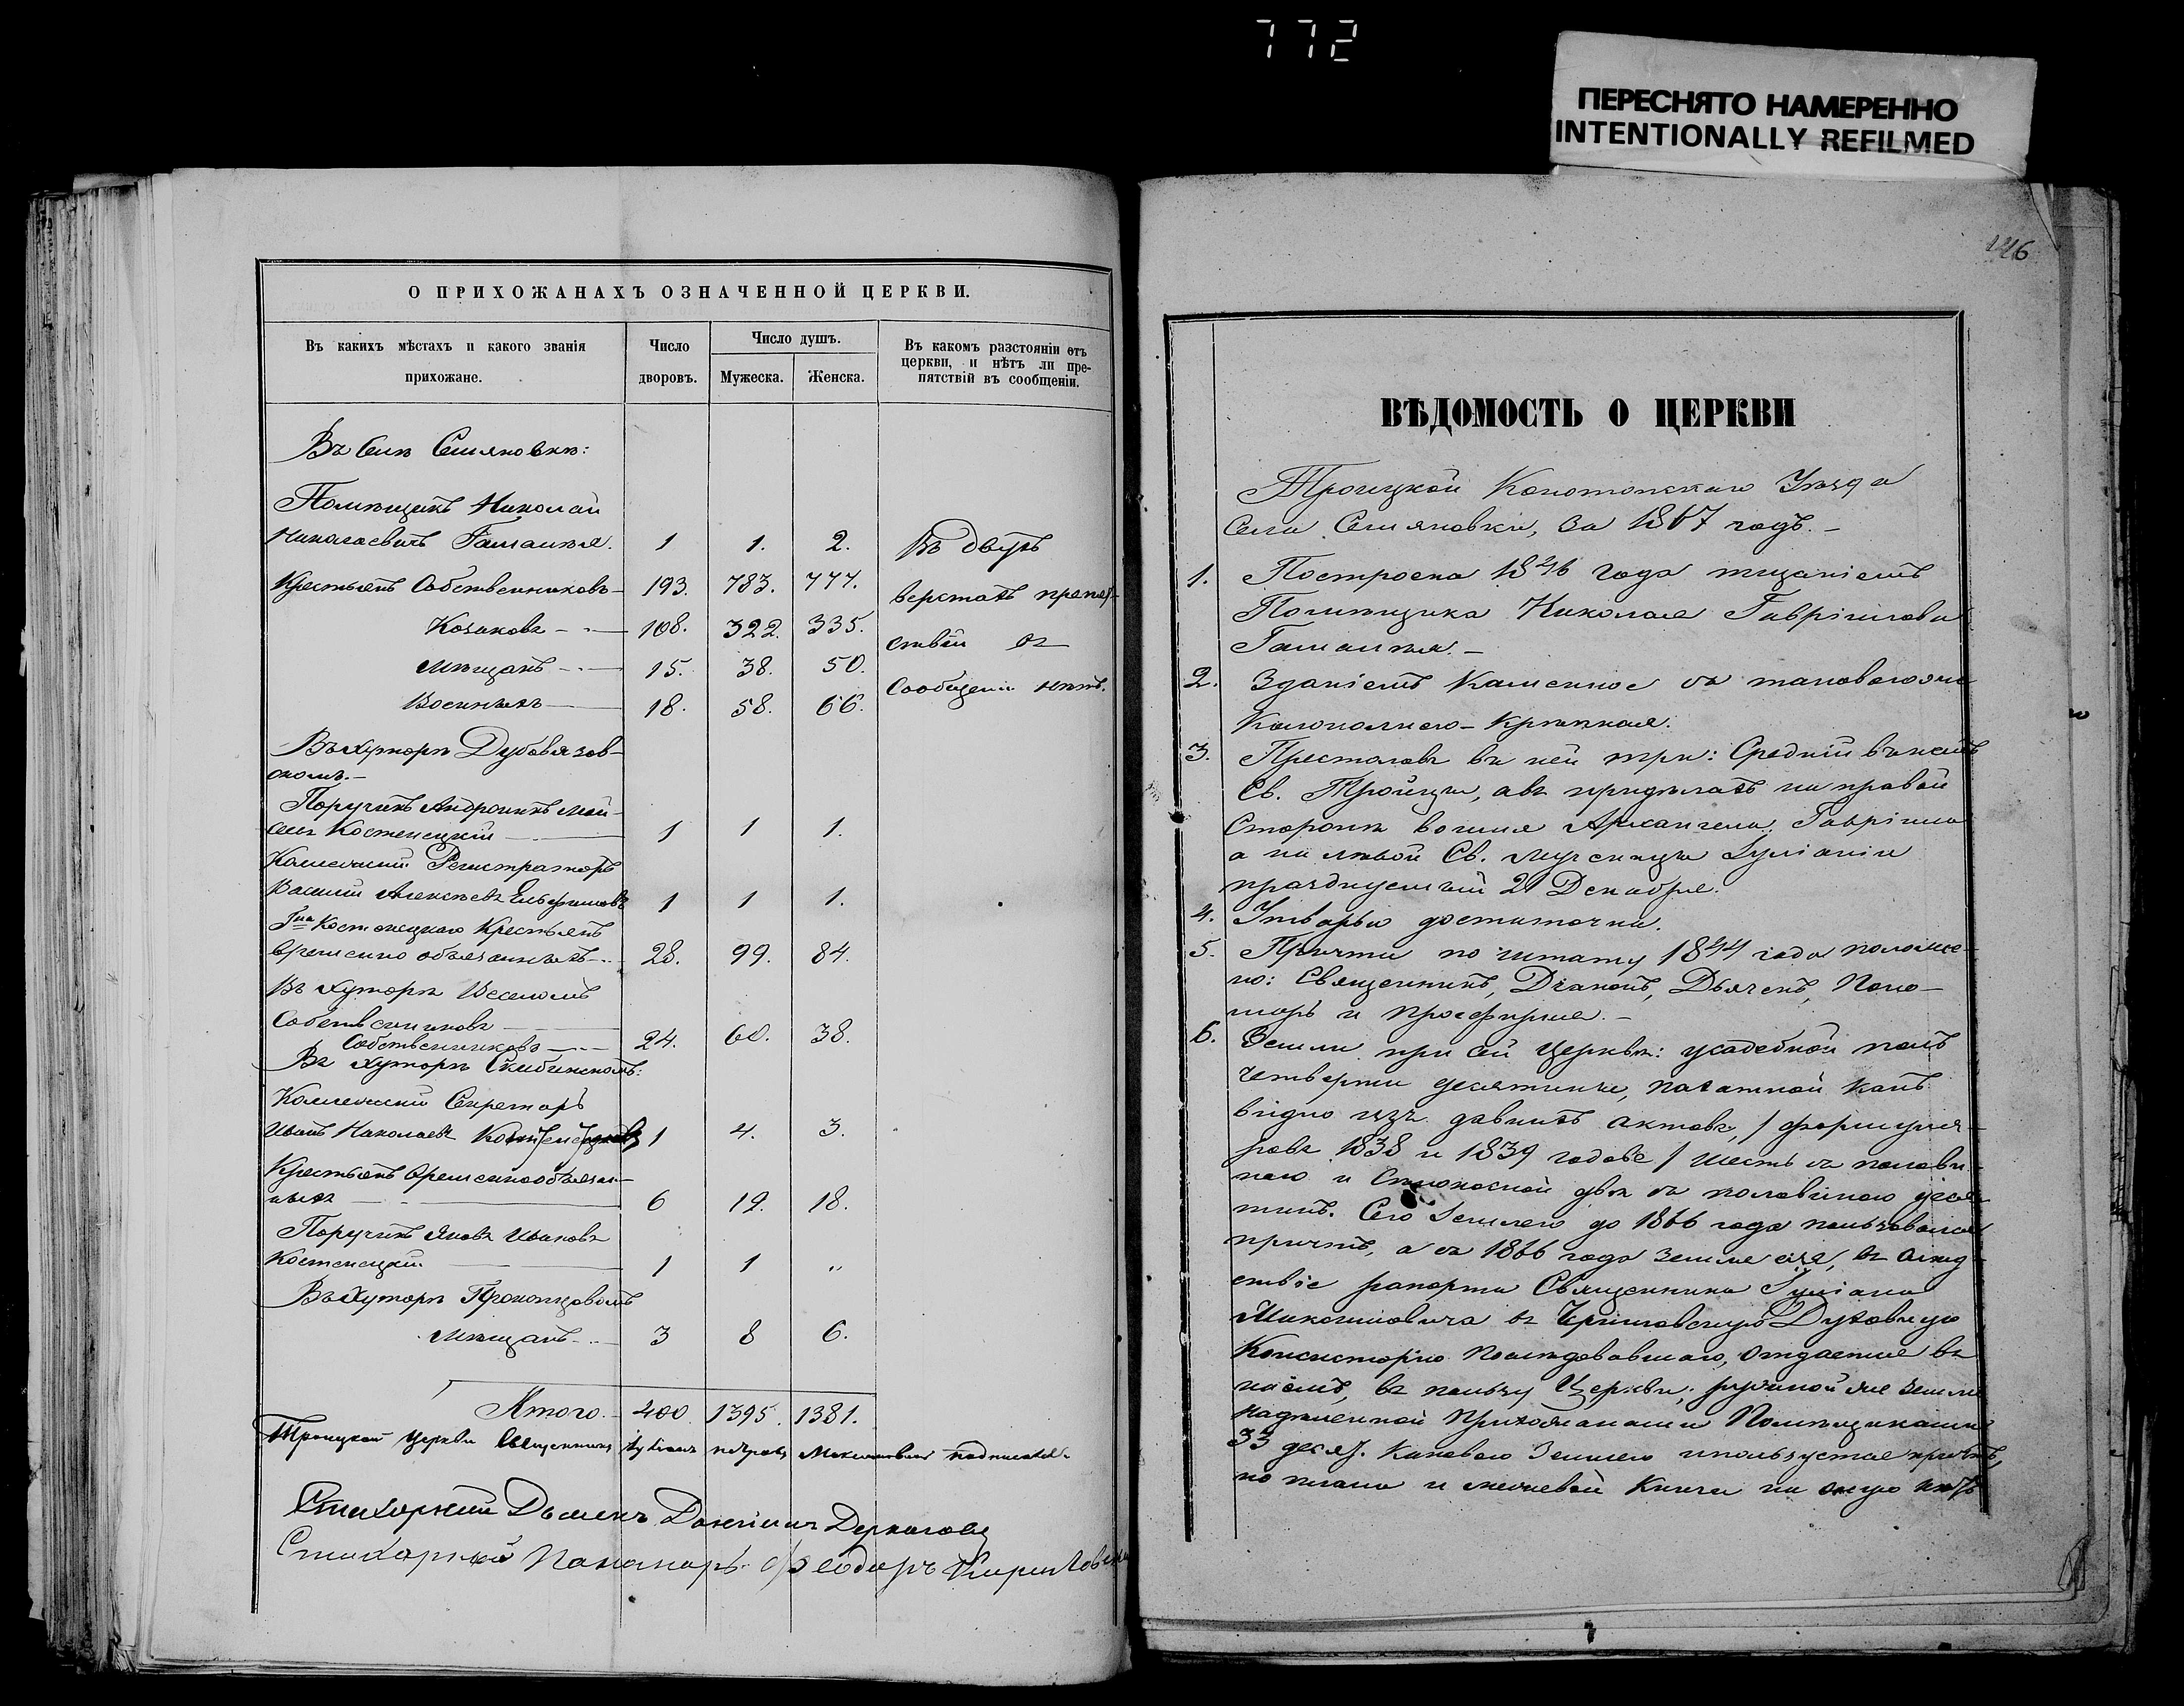 772
ПЕРЕСНЯТО НАМЕРЕННО
INTENTIONALLY REFILMED
О ПРИХОЖАНАХЪ ОЗНАЧЕННОЙ ЦЕРКВИ.
Въ какихъ мѣстахъ и какого званія прихожане.
Число дворовъ.
Число душъ.
Мужеска.
Женска.
Въ какомъ разстояніи отъ церкви, и нѣтъ ли препятствій въ сообщеніи.
Въ селѣ Семяновкѣ:
Помѣщикъ Николай
Николаевичъ Гамалѣя. 1 1. 2. Въ двухъ
Крестьянъ Собственниковъ 193. 783. 777. верстахъ препят-
Козаковъ 108. 322. 335. ствій въ
Мѣщанъ 15. 38. 50. Сообщеніи нѣтъ.
Военныхъ 18. 58. 66.
Въ хуторѣ Дубовязов-
скомъ.
Поручикъ Андроникъ Мой-
сеевъ Костенецкій 1 1 1.
Коллежскій Регистраторъ
Василій Алексѣевъ 1 1 1.
Гна Костенецкаго Крестьянъ
временно обязанныхъ 28. 99. 84.
Въ хуторѣ Веселомъ
Собственниковъ
Собственниковъ 24. 60. 38.
Въ хуторѣ Скибинскомъ:
Коллежскій Секретарь
Иванъ Николаевъ 1 4. 3.
Крестьянъ временнообязан-
ныхъ 6 19. 18.
Поручикъ Яковъ Ивановъ
Костенецкій 1 1 „
Въ хуторѣ Прокопцовомъ
Мѣщанъ 3 8 6.
Итого 400 1395. 1381.
Троицкой Церкви Священникъ Іуліанъ Петровъ Максимовичъ подписался
Стихарный Дьячекъ Даніилъ
Стихарный Пономарь Феодоръ
146
ВѢДОМОСТЬ О ЦЕРКВИ
Троицкой Конотопскаго Уѣзда
Села Семяновки, за 1867 годъ.
1. Построена 1846 года тщаніемъ
Помѣщика Николая Гавріилова
Гамалѣя.
2. Зданіемъ Каменное съ таковоюже
Колокольнею Крѣпкая.
3. Престоловъ въ ней три: Средній во имя
Св. Тройцы, а въ придѣлахъ на правой
Сторонѣ во имя Архангела Гавріила
а на лѣвой Св. Мученицы Іуліаніи
празднуемый 21 Декабря.
4. Утварью достаточна.
5. Причта по штату 1844 года положе-
но: Священникъ, Діаконъ, Дьячекъ, Поно-
марь и Просфирня.
6. Земли при сей Церкви: усадебной полъ
четверти десятины, пахатной какъ
видно изъ давнихъ актовъ, / формуля-
ровъ 1838 и 1839 годовъ / шесть съ полови-
ною и Сѣнокосной двѣ съ половиною деся-
тинъ. Сею Землею до 1866 года пользовался
причтъ, а съ 1866 года земля сія, въ слѣд-
ствіе рапорта Священника Іуліана
Максимовича въ Черниговскую Духовную
Консисторію послѣдовавшаго, отдается въ
наемъ, въ пользу Церкви; ружной же земли
надѣленной Прихожанами Помѣщиками
33 десят. каковою Землею и пользуется причтъ,
но плана и межевой Книги на оную нѣтъ